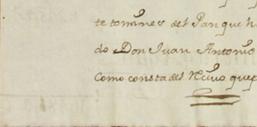 te tomines del Pan que h
do Don Juan Antonio
Como consta del Recivo que p